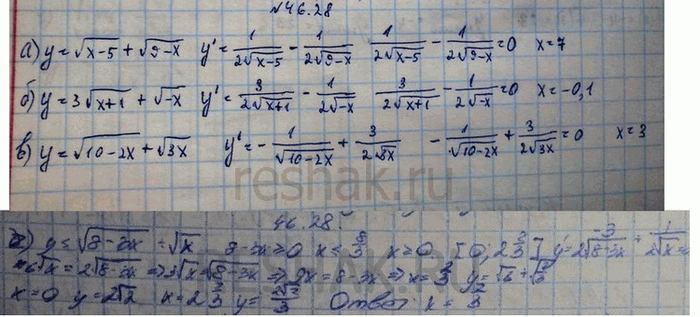 №46.28
а) y = √(x-5) + √(9-x)   y' = 1/(2√(x-5)) - 1/(2√(9-x))   1/(2√(x-5)) - 1/(2√(9-x)) = 0   x = 7
б) y = 3√(x+1) + √(-x)   y' = 3/(2√(x+1)) - 1/(2√(-x))   3/(2√(x+1)) - 1/(2√(-x)) = 0   x = -0,1
в) y = √(10-2x) + √(3x)   y' = - 1/√(10-2x) + 3/(2√(3x))   - 1/√(10-2x) + 3/(2√(3x)) = 0   x = 3
reshak.ru
46.28.
y = √(8-3x) = √x   8-3x ≥ 0   x ≤ 8/3   x ≥ 0   [0, 2 2/3]   y' = -3/(2√(8-3x)) + 1/(2√x) =
6√x = 2√(8-3x) => 3√x = √(8-3x) => 9x = 8-3x => x = 2/3   y = √6 + √(2/3)
x = 0   y = 2√2   x = 2 2/3   y =   Ответ: x = 2/3